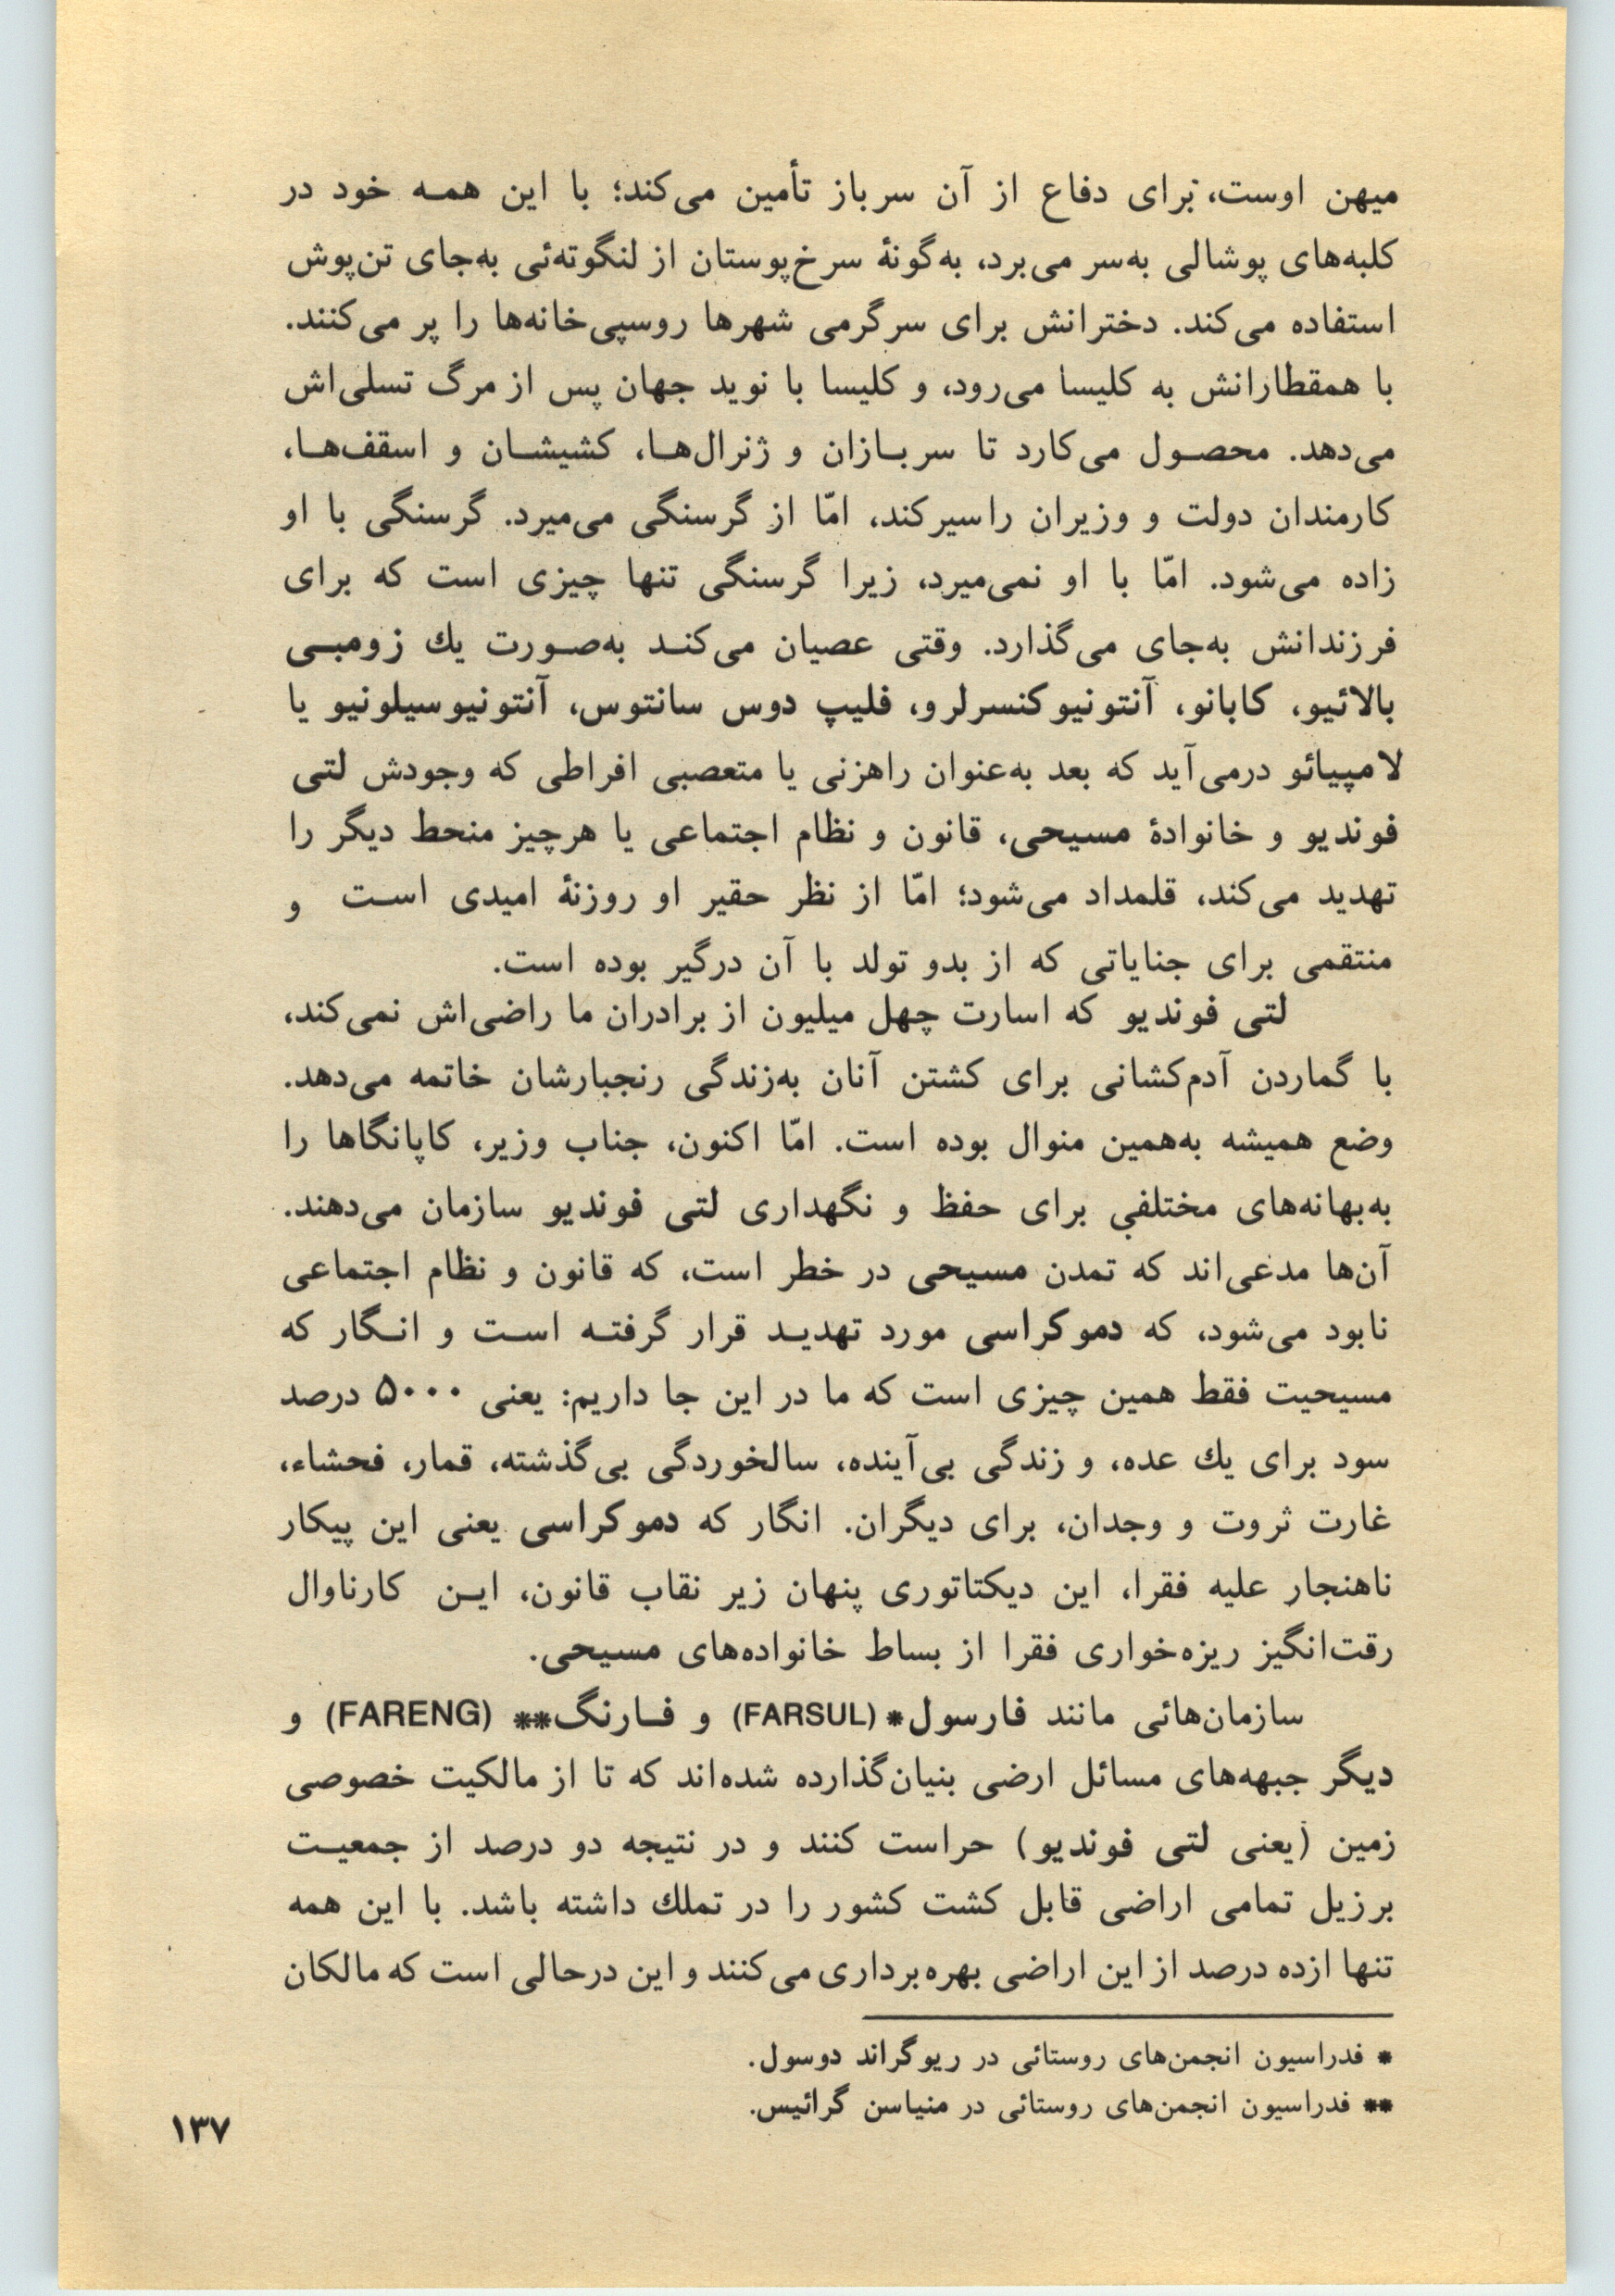 میهن اوست، برای دفاع از آن سرباز تأمین می‌کند؛ با این همـه خود در
کلبه‌های پوشالی به‌سر می‌برد، به‌گونهٔ سرخ‌پوستان از لنگوته‌ئی به‌جای تن‌پوش
استفاده می‌کند. دخترانش برای سرگرمی شهرها روسپی‌خانه‌ها را پر می‌کنند.
با همقطارانش به کلیسا می‌رود، و کلیسا با نوید جهان پس از مرگ تسلی‌اش
می‌دهد. محصـول می‌کارد تا سربـازان و ژنرال‌هـا، کشیشـان و اسقف‌هـا،
کارمندان دولت و وزیران را سیر کند، امّا از گرسنگی می‌میرد. گرسنگی با او
زاده می‌شود. امّا با او نمی‌میرد، زیرا گرسنگی تنها چیزی است که برای
فرزندانش به‌جای می‌گذارد. وقتی عصیان می‌کنـد به‌صـورت یك زومبـی
بالائیو، کابانو، آنتونیو کنسرلرو، فلیپ دوس سانتوس، آنتونیو سیلونیو یا
لامپیائو درمی‌آید که بعد به‌عنوان راهزنی یا متعصبی افراطی که وجودش لتی
فوندیو و خانوادهٔ مسیحی، قانون و نظام اجتماعی یا هرچیز منحط دیگر را
تهدید می‌کند، قلمداد می‌شود؛ امّا از نظر حقیر او روزنهٔ امیدی اسـت و
منتقمی برای جنایاتی که از بدو تولد با آن درگیر بوده است.
لتی فوندیو که اسارت چهل میلیون از برادران ما راضی‌اش نمی‌کند،
با گماردن آدم‌کشانی برای کشتن آنان به‌زندگی رنجبارشان خاتمه می‌دهد.
وضع همیشه به‌همین منوال بوده است. امّا اکنون، جناب وزیر، کاپانگاها را
به‌بهانه‌های مختلفی برای حفظ و نگهداری لتی فوندیو سازمان می‌دهند.
آن‌ها مدعی‌اند که تمدن مسیحی در خطر است، که قانون و نظام اجتماعی
نابود می‌شود، که دموکراسی مورد تهدیـد قرار گرفتـه اسـت و انـگار که
مسیحیت فقط همین چیزی است که ما در این جا داریم: یعنی ۵۰۰۰ درصد
سود برای یك عده، و زندگی بی‌آینده، سالخوردگی بی‌گذشته، قمار، فحشاء،
غارت ثروت و وجدان، برای دیگران. انگار که دموکراسی یعنی این پیکار
ناهنجار علیه فقرا، این دیکتاتوری پنهان زیر نقاب قانون، ایـن کارناوال
رقت‌انگیز ریزه‌خواری فقرا از بساط خانواده‌های مسیحی.
سازمان‌هائی مانند فارسول* (FARSUL) و فـارنگ** (FARENG) و
دیگر جبهه‌های مسائل ارضی بنیان‌گذارده شده‌اند که تا از مالکیت خصوصی
زمین (یعنی لتی فوندیو) حراست کنند و در نتیجه دو درصد از جمعیـت
برزیل تمامی اراضی قابل کشت کشور را در تملك داشته باشد. با این همه
تنها ازده درصد از این اراضی بهره‌برداری می‌کنند و این درحالی است که مالکان
* فدراسیون انجمن‌های روستائی در ریوگراند دوسول.
** فدراسیون انجمن‌های روستائی در منیاسن گرائیس.
۱۳۷